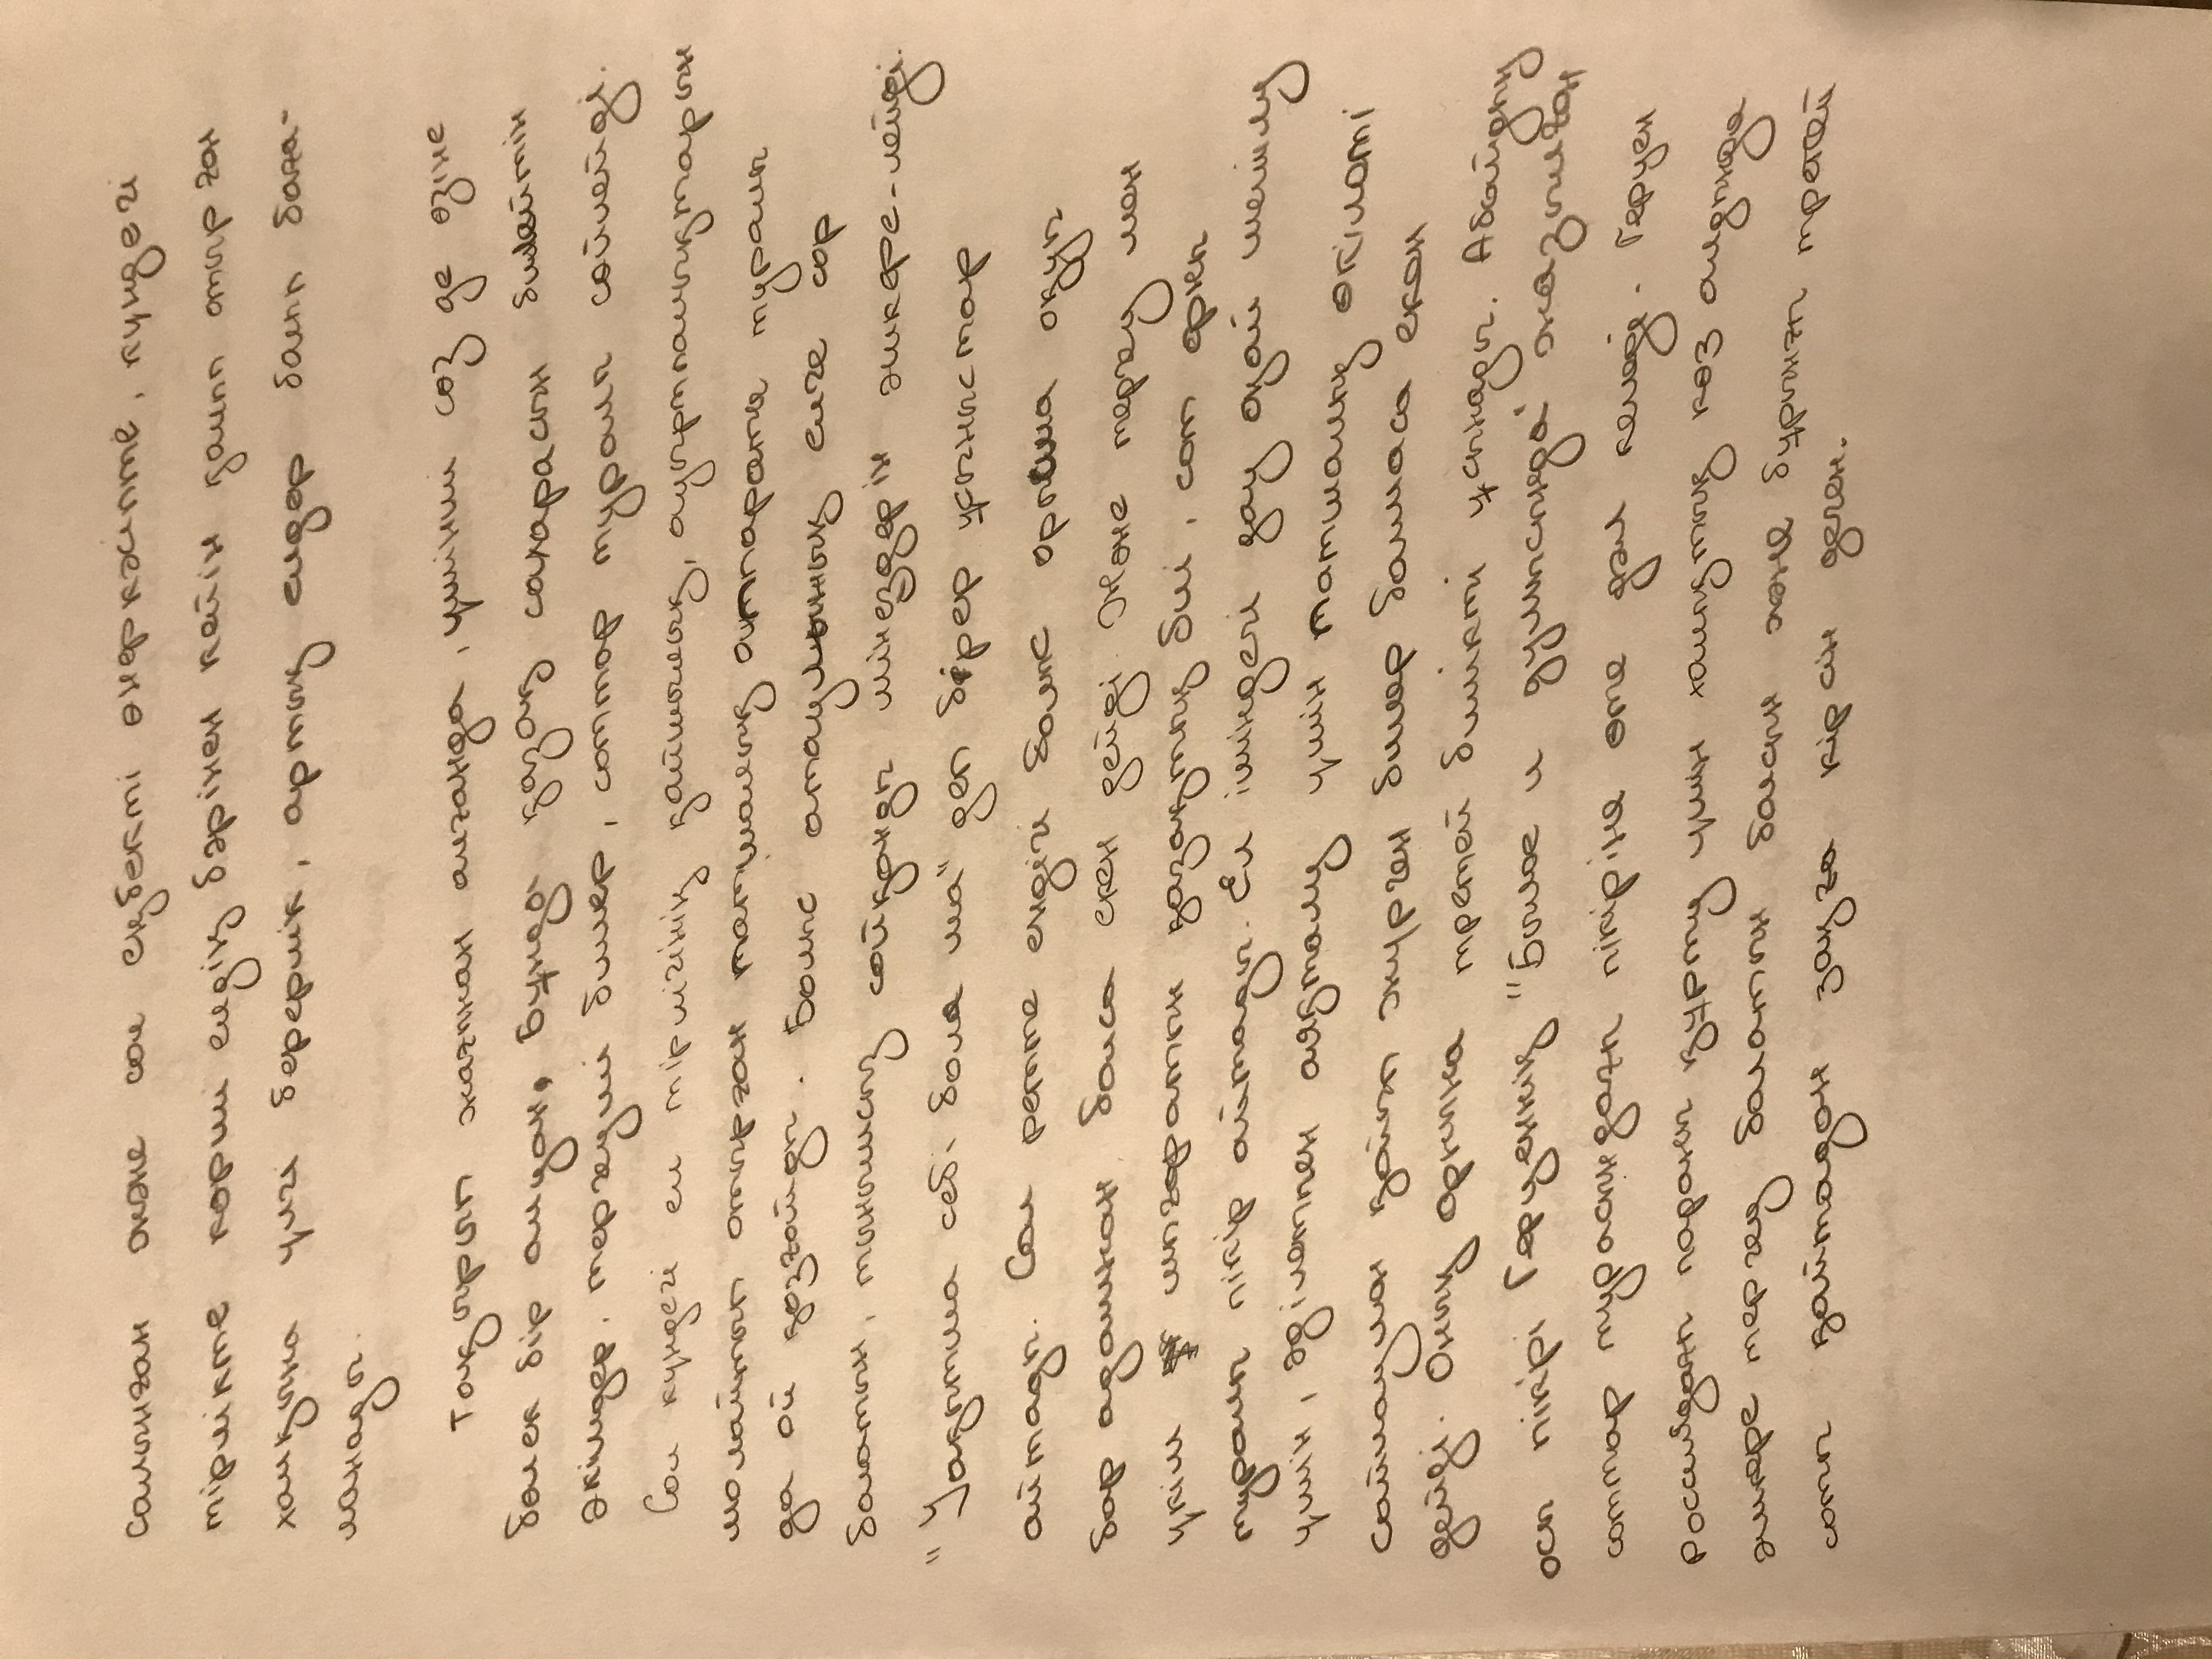 салынған және сол еңбекті өнеркәсіпте, күндегі
тірлікте көрші елдің бәрінен кейін қалып отырған
халқына үлгі берерлік, артық елдер болып баға-
ланады.
Тақырып жағынан алғанда, үшінші сөз де өзіне
бөлек бір алуан. Бұнда қазақ сахарасын билейтін
әкімдер, тергеуші билер, соттар туралы сөйлейді.
Сол күндегі ел тірлігінің қайшылық, ауыртпалықтарын
молайтып отырған патшалық аппараты туралы
да ой қозғайды. Болыс атаулының елге сор
болатын, тынышсыз сойқанды мінездерін әшкере-лейді.
"Уақытша себі бола ма" деп бірер ұсыныстар
айтады. Сол ретте ендігі болыс орысша оқуы
бар адамнан болса екен дейді. Және тергеу мен
үкім шығаратын қазақтың биі, сот орны
туралы пікір айтады. Ел ішіндегі дау оңай шешілу
үшін, әділетпен аяқталу үшін патшалық өкілеті
сайлауман қойып жүрген билер болмаса екен
дейді. Оның орнына третей билікті ұсынады. Абайдың
осы пікірі Герценнің "Былое и думысында" жазылған
соттар турасындағы пікіріне өте дәл келеді. Герцен
Россиядағы параны құрту үшін халықтың көз алдында
әшкере тергеу болатын болсын және бұрынғы третей
соты қайтадан заңға кірсін деген.